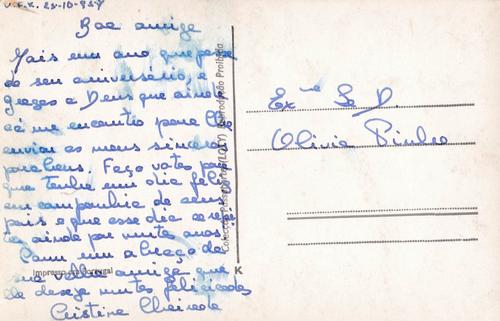 V.F.X. 28-10-957
Boa amiga
Mais um ano que passa
do seu aniversário, e
graças a Deus que ainda
cá me encontro para lhe
enviar os meus sinceros
parabens. Faço votos para
que tenha um dia feliz
em companhia de seus
pais e que esse dia se repi-
ta ainda por muitos anos.
Com um abraço da
sua velha amiga que
lhe deseja muitas felicidades
Cristina
Exma Sr D.
Olivia
Impresso em Portugal
K
Reprodução Proibida